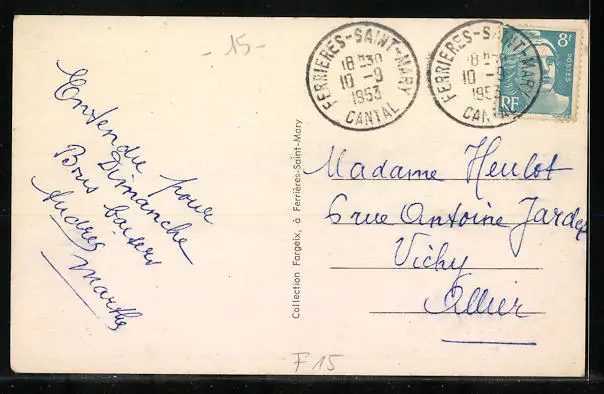 - 15 -
Entendu pour
Dimanche
Bons baisers
Andrée
Marthe
Collection Fargeix, à Ferrières-Saint-Mary
FERRIERES-SAINT-MARY
18H30
10-9
1953
CANTAL
FERRIERES-SAINT-MARY
18H30
10-9
1953
CANTAL
8F
POSTES
RF
Madame Heulot
6 rue Antoine Jardet
Vichy
Allier
F 15